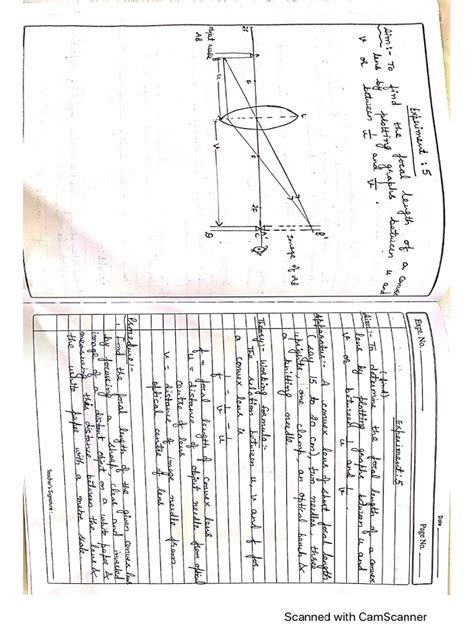 Experiment : 5
Aim:- To find the focal length of a convex
lens by plotting graphs between u and
v or between 1/u and 1/v.
L
2F
F
A
B
AB
u
v
F
2F
A'
C
D
B'
Image of AB
Date
Expt. No.
Page No.
Experiment: 5
(find)
Aim:- To determine the focal length of a convex
lens by plotting graphs between u and
v or between 1/u and 1/v
Apparatus:- A convex lens of short focal length
(say 15 to 20 cm), two needles, three
uprights, one clamp an optical bench &
a knitting needle
Theory:- Working formula:-
The relation between u, v and f for
a convex lens is
1/f = 1/v - 1/u
f = focal length of convex lens
u = distance of object needle from optical
centre of lens
v = distance of image needle from
optical centre of lens
Procedure:-
1. Find the focal length of the given convex lens
by focusing a sharp, clear and inverted
image of a distant object on a white paper &
measuring this distance between the lens &
the white paper with a metre scale
Teacher's Signature
Scanned with CamScanner